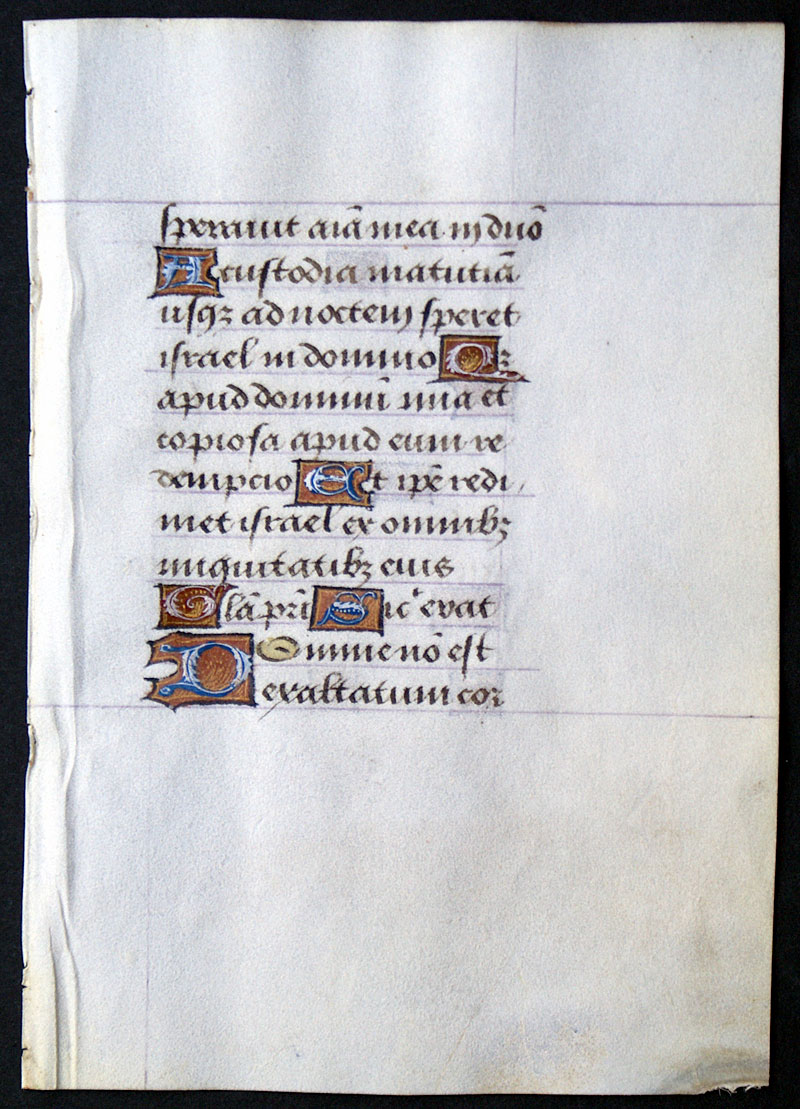 speravit aīa mea in dño
A custodia matutiā
usqꝫ ad noctem speret
israel in domino Qꝫ
apud dominū mia et
copiosa apud eum re
dempcio Et ip̄e redi
met israel ex omnibꝫ
iniquitatibꝫ eius
Glā pr̄i Sic erat
Domine nō est
exaltatum cor